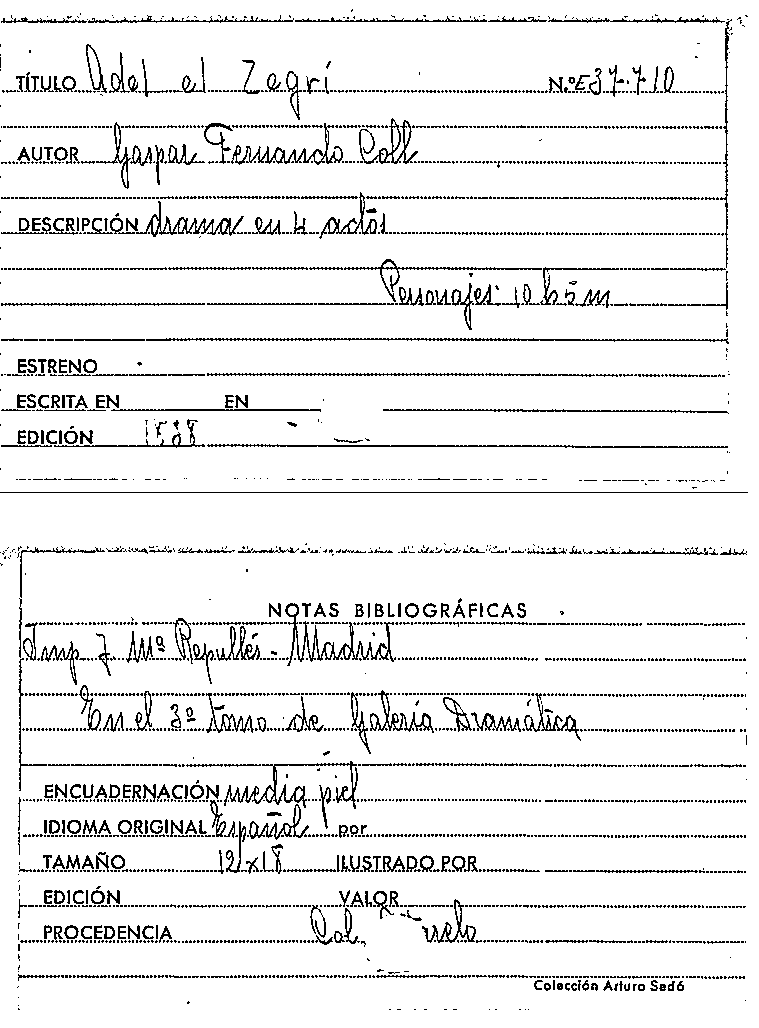 TÍTULO Adel el Zegrí N.ºE 37-710
AUTOR Gaspar Fernando Coll
DESCRIPCIÓN drama en 4 actos
Personajes: 10 h 5 m
ESTRENO
ESCRITA EN EN
EDICIÓN 1838
NOTAS BIBLIOGRÁFICAS
Imp J. Mª Repullés - Madrid
En el 3º tomo de Galería Dramática
ENCUADERNACIÓN media piel
IDIOMA ORIGINAL Español por
TAMAÑO 12x18 ILUSTRADO POR
EDICIÓN VALOR
PROCEDENCIA Col.
Colección Arturo Sedó